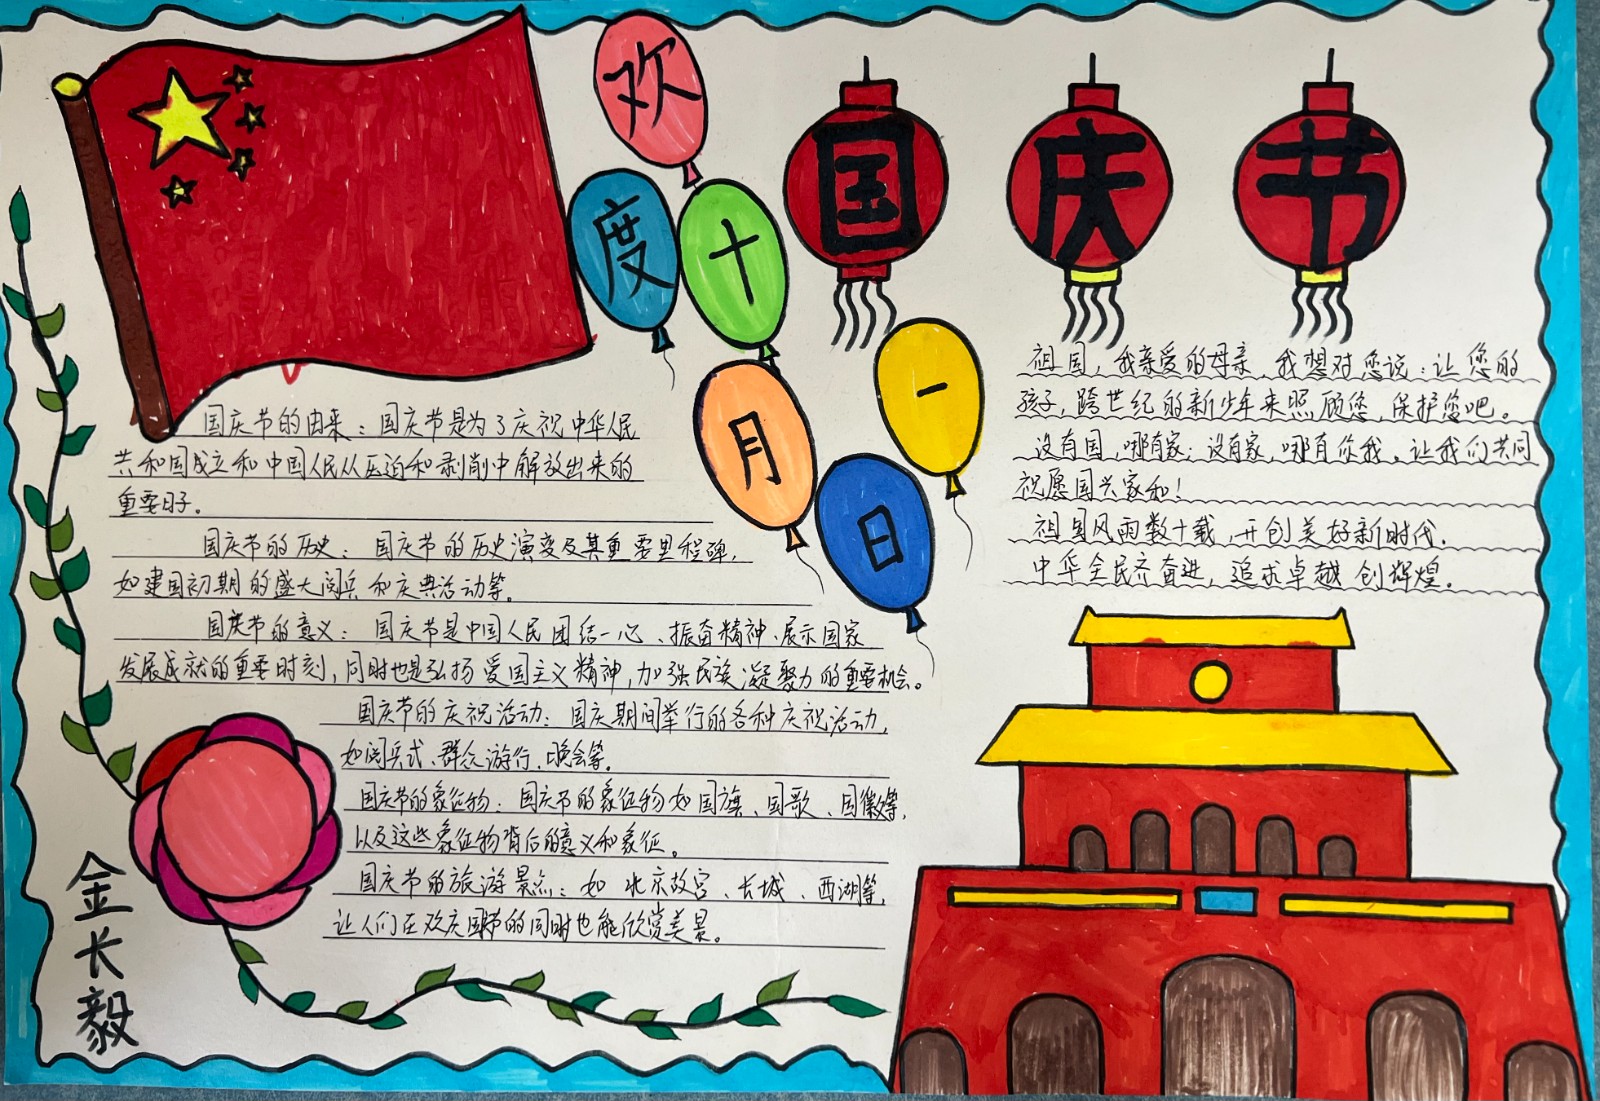 欢度十月一日
国庆节
国庆节的由来：国庆节是为了庆祝中华人民
共和国成立和中国人民从压迫和剥削中解放出来的
重要日子。
国庆节的历史：国庆节的历史演变及其重要里程碑，
如建国初期的盛大阅兵和庆典活动等。
国庆节的意义：国庆节是中国人民团结一心、振奋精神、展示国家
发展成就的重要时刻，同时也是弘扬爱国主义精神，加强民族凝聚力的重要机会。
国庆节的庆祝活动：国庆期间举行的各种庆祝活动，
如阅兵式、群众游行、晚会等。
国庆节的象征物：国庆节的象征物如国旗、国歌、国徽等，
以及这些象征物背后的意义和象征。
国庆节的旅游景点：如北京故宫、长城、西湖等，
让人们在欢庆国节的同时也能欣赏美景。
祖国，我亲爱的母亲，我想对您说：让您的
孩子，跨世纪的新少年来照顾您，保护您吧。
没有国，哪有家；没有家，哪有你我。让我们共同
祝愿国兴家和！
祖国风雨数十载，开创美好新时代.
中华全民齐奋进，追求卓越创辉煌.
金长毅